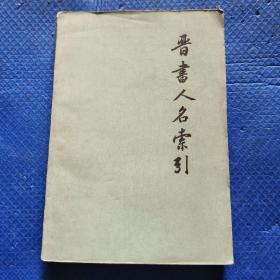 晋書人名索引